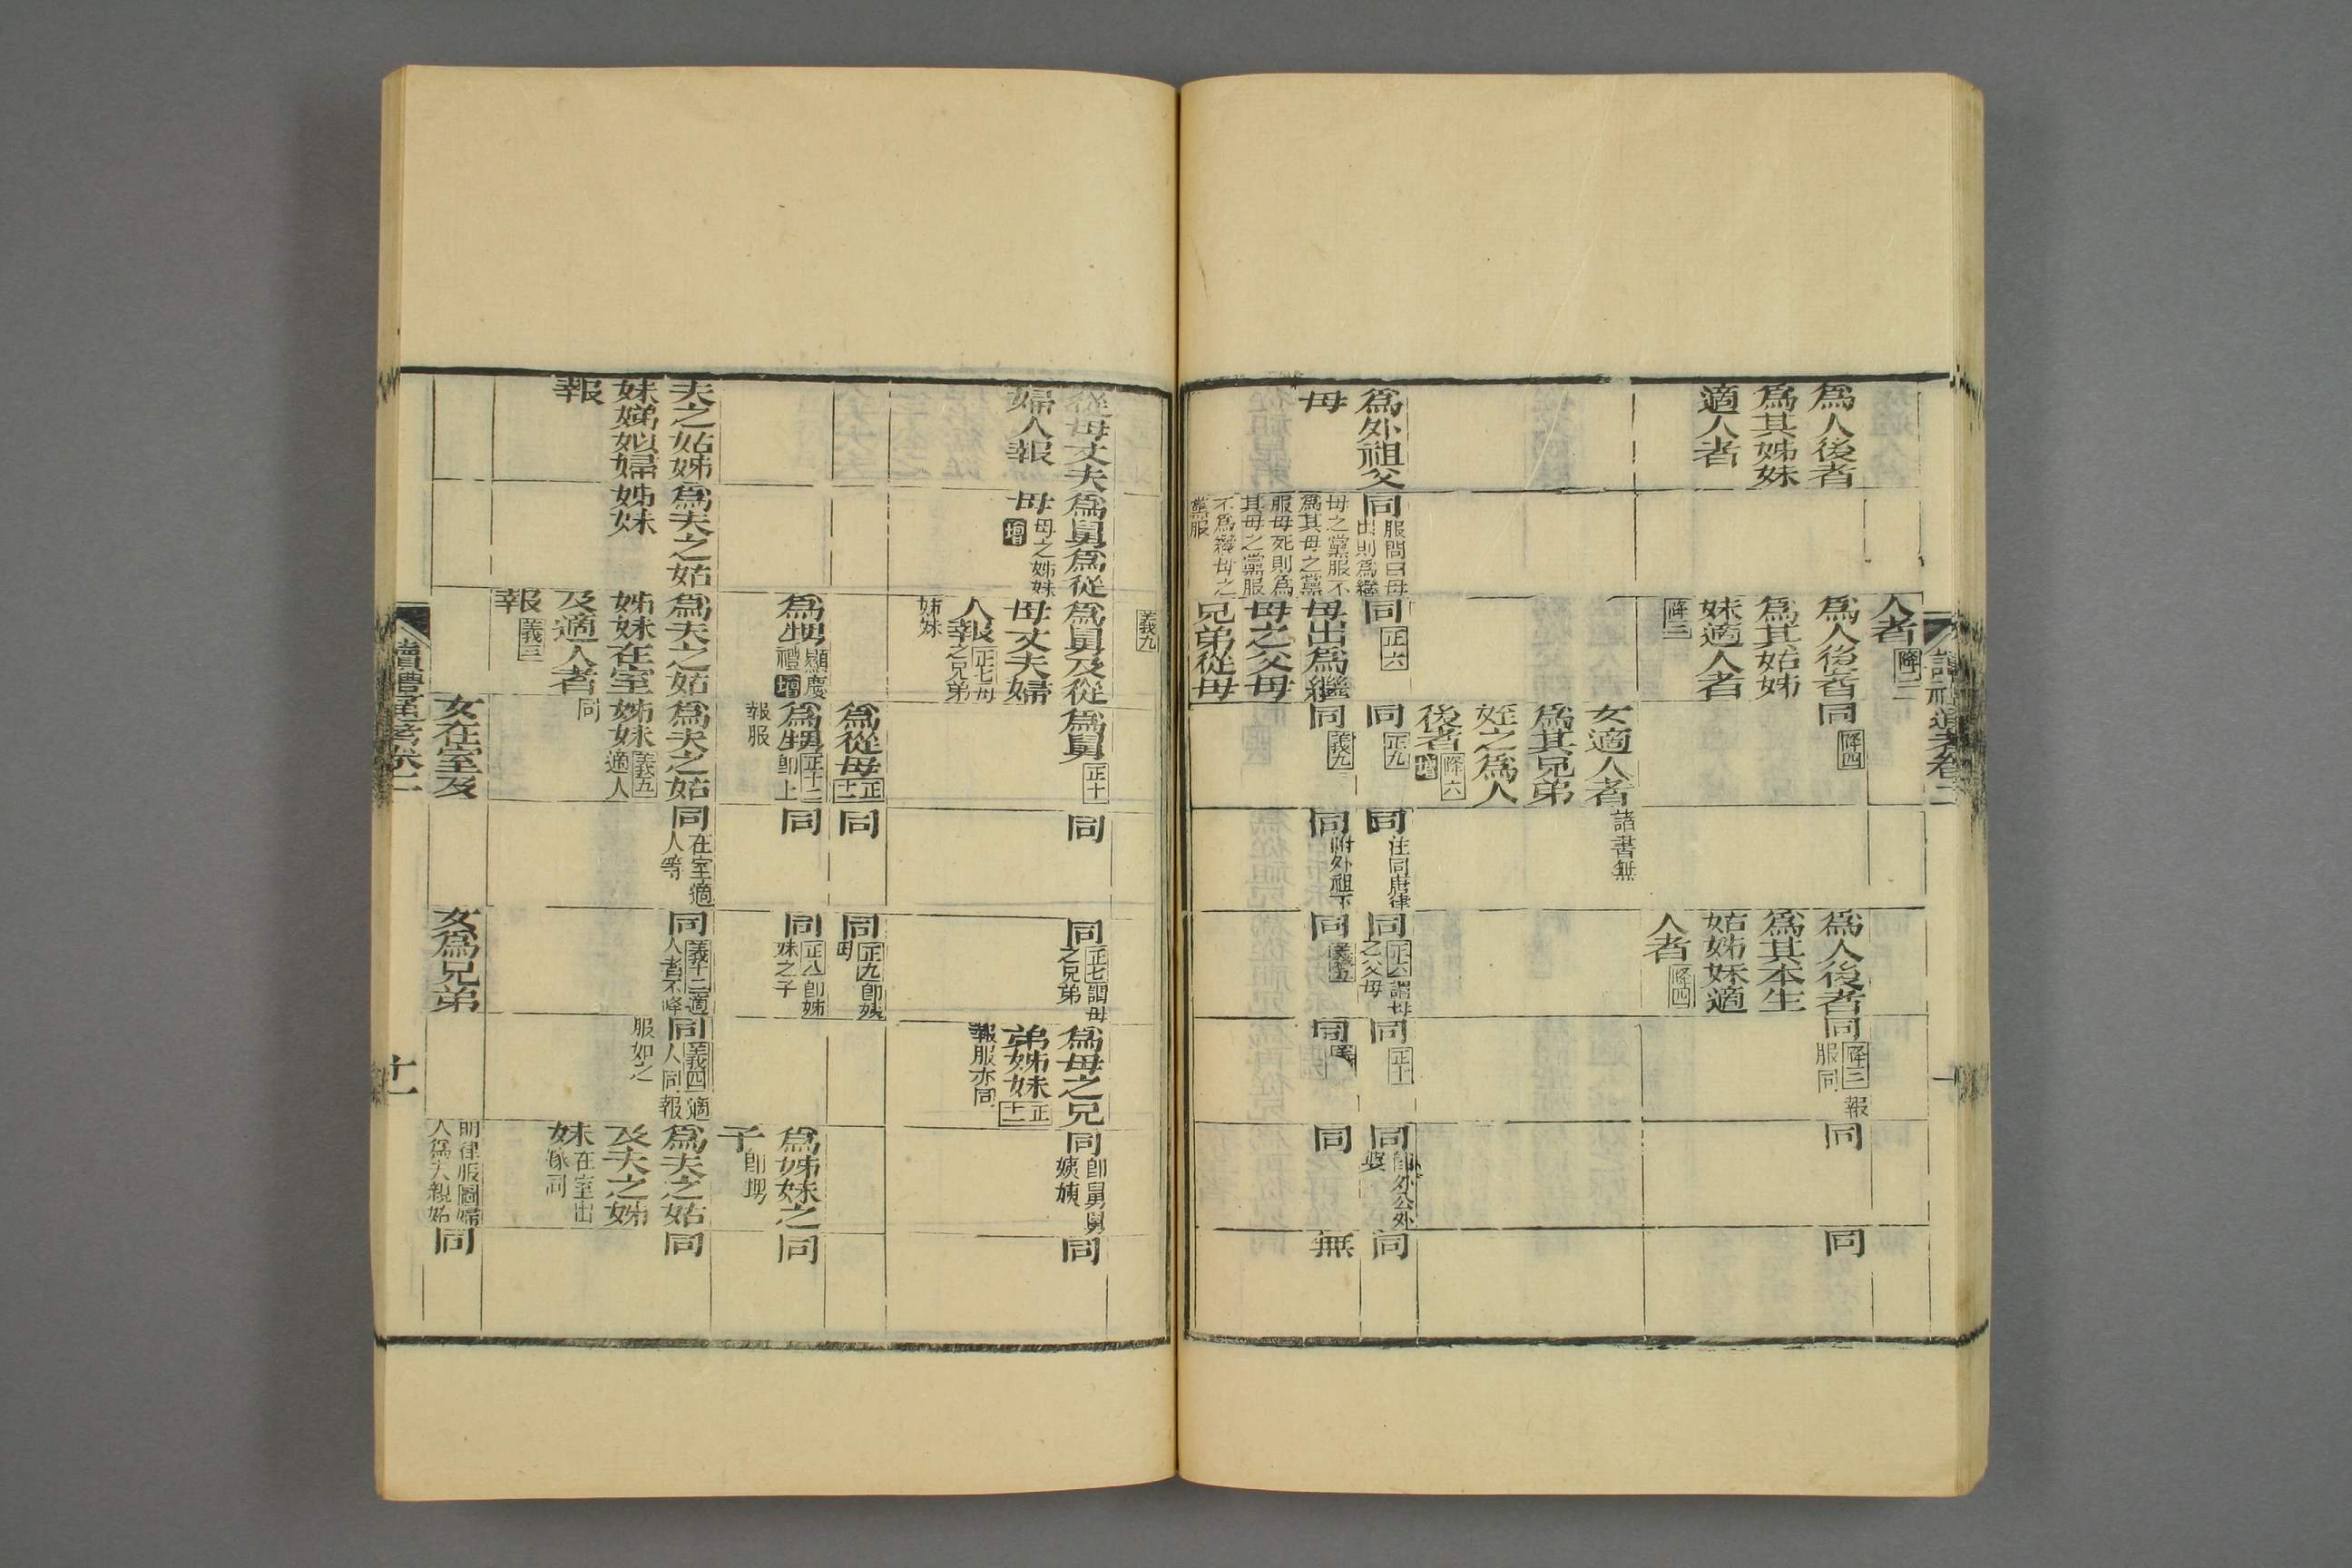 讀禮通考卷二
人者 降二
爲人後者
爲其姊妹
適人者
爲人後者
爲其姑姊
妹適人者
降三
同 降四
爲人後者
爲其本生
姑姊妹適
人者 降四
同 降三 報
服同
同
同
女適人者
爲其兄弟
姪之爲人
後者 降六 增
諸書無
爲外祖父
母
同 服問曰母
出則爲繼
母之黨服不
爲其母之黨
服母死則爲
其母之黨服
不爲繼母之
黨服
同 正六
同 正九
同 注同唐律
同 正六 謂母
之父母
同 正十
同 卽外公外
婆
同
母出爲繼
母之父母
兄弟從母
同 義九
同 附外祖下
同 義五
同
同
無
義九
從母丈夫
婦人報
爲舅爲從
母 母之姊妹
增
爲舅及從
母丈夫婦
人報 正七 母
之兄弟
姊妹
爲舅 正十
同
同 正七 謂母
之兄弟
爲母之兄
弟姊妹 正十一
報服亦同
同 卽舅舅
姨姨
同
爲從母 正十一
同
同 正九 卽姨
母
爲甥 顯慶
禮 增
爲甥 正十二 卽上
報服
同
同 正八 卽姊
妹之子
爲姊妹之
子 卽甥
同
夫之姑姊
妹娣姒婦
報
爲夫之姑
姊妹
爲夫之姑
姊妹在室
及適人者
報 義三
爲夫之姑
姊妹 義五 適人
同
同 在室適
人等
同 義十二 適
人者不降
同 義四 適
人同 報
服如之
爲夫之姑
及夫之姊
妹 在室出
嫁同
同
女在室及
女爲兄弟
明律服圖婦
人爲夫親姑
同
讀禮通考卷二
十一